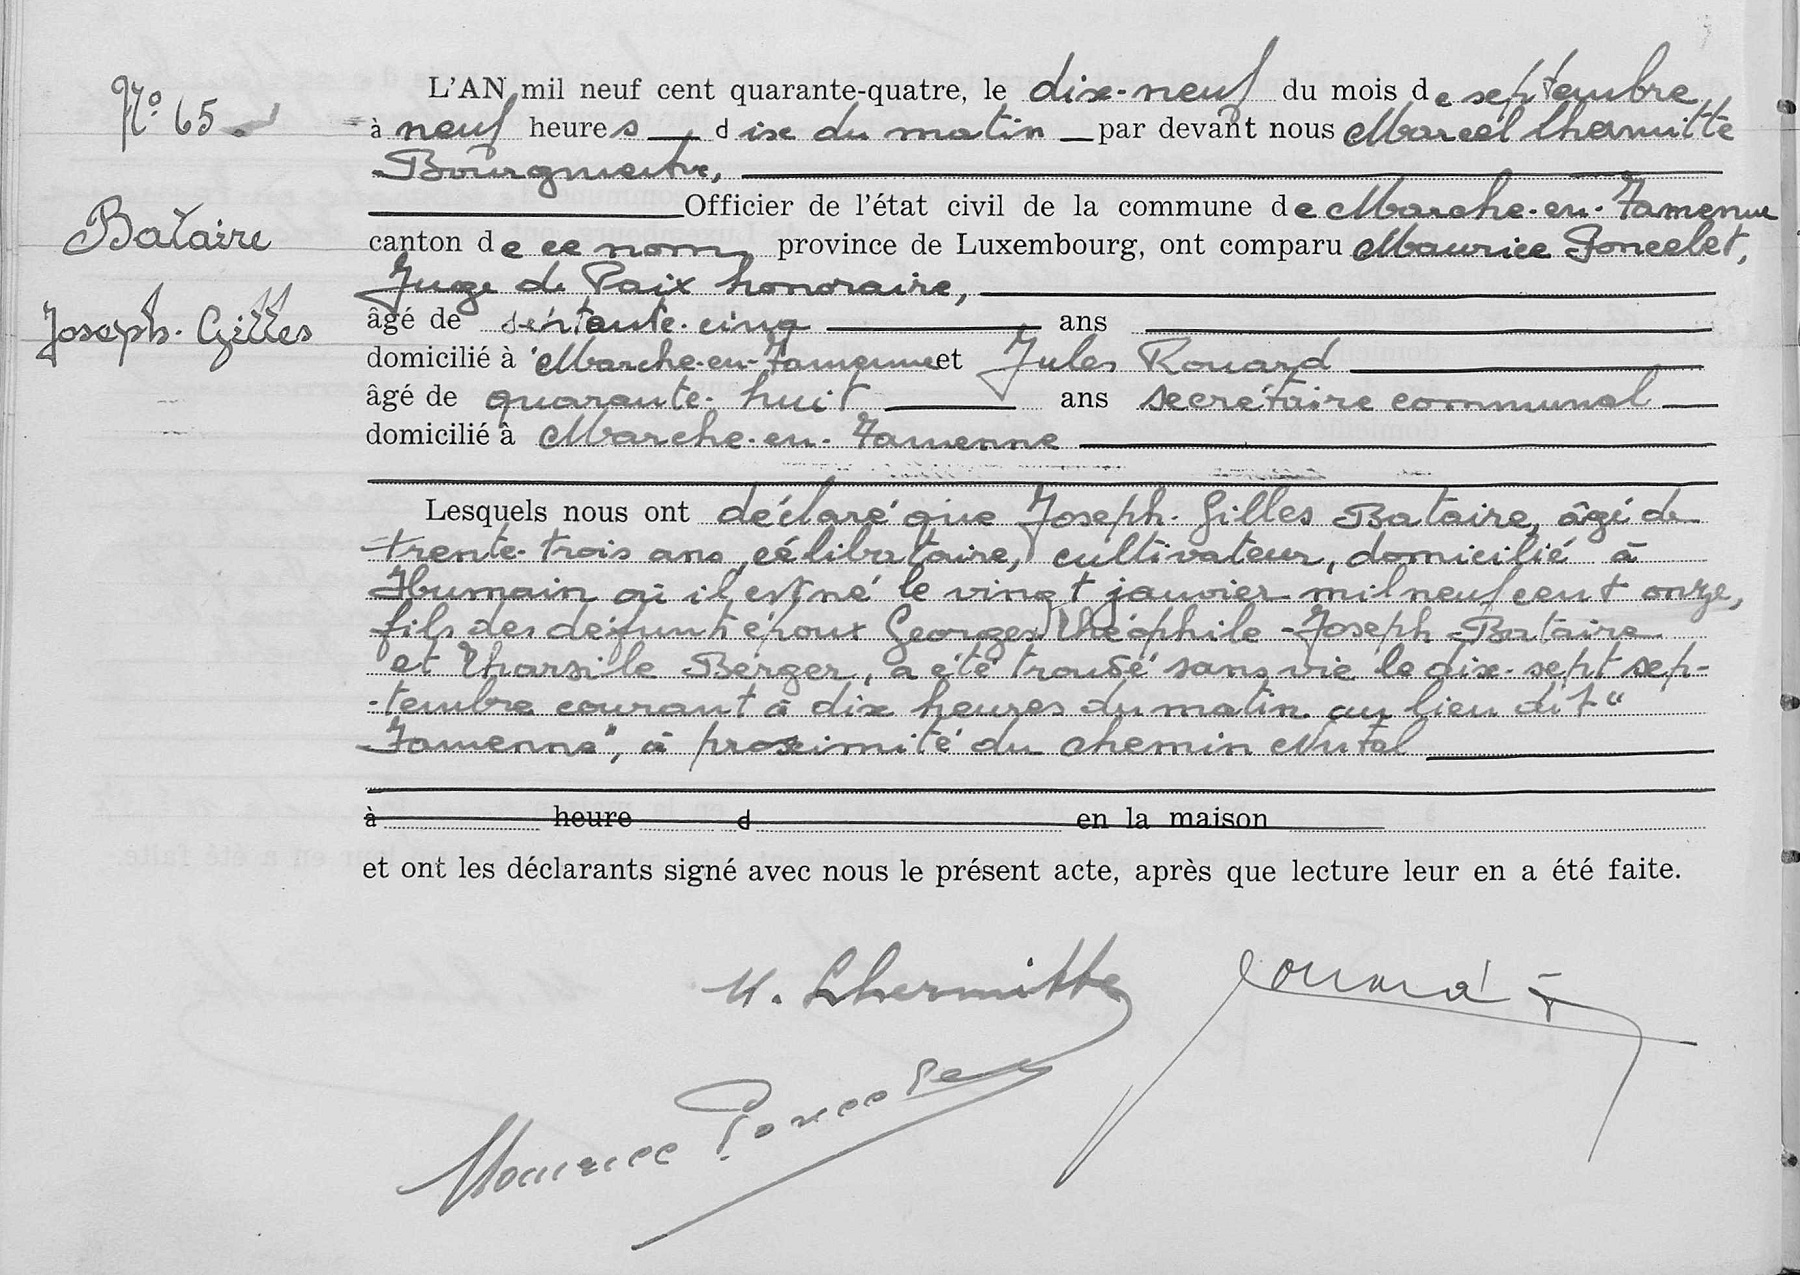 N° 65.
Bataire
Joseph-Gilles
L'AN mil neuf cent quarante-quatre, le dix-neuf du mois de septembre
à neuf heures dix du matin par devant nous Marcel Lhermitte
Bourgmestre,
Officier de l'état civil de la commune de Marche-en-Famenne
canton de ce nom province de Luxembourg, ont comparu Maurice Poncelet,
Juge de Paix honoraire,
âgé de septante-cinq ans
domicilié à Marche-en-Famenne et Jules Rouard
âgé de quarante-huit ans secrétaire communal
domicilié à Marche-en-Famenne
Lesquels nous ont déclaré que Joseph-Gilles Bataire, âgé de
trente-trois ans, célibataire, cultivateur, domicilié à
Humain où il est né le vingt janvier mil neuf cent onze,
fils des défunts époux Georges Théophile-Joseph Bataire
et Tharsile Berger, a été trouvé sans vie le dix-sept sep-
-tembre courant à dix heures du matin au lieu dit "
Famenne", à proximité du chemin Nutal
à heure d en la maison
et ont les déclarants signé avec nous le présent acte, après que lecture leur en a été faite.
M. Lhermitte
Rouard J
Maurice Poncelet